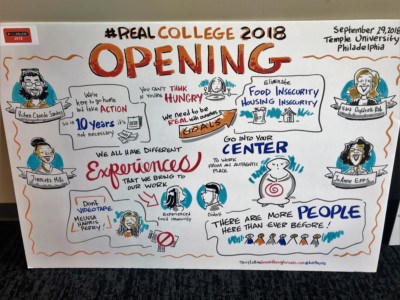 #REAL COLLEGE 2018
OPENING
September 29, 2018
Temple University
Philadelphia
We're
here to go home
and take ACTION
so in 10 years it's
not necessary
YOU CAN'T THINK
IF YOU'RE
HUNGRY
We need to be
REAL with our
GOALS
Eliminate
FOOD INSECURITY
HOUSING INSECURITY
WE ALL HAVE DIFFERENT
Experiences
THAT WE BRING TO
OUR WORK
GO INTO YOUR
CENTER
TO WORK
FROM AN AUTHENTIC
PLACE
Experienced
food insecurity
Didn't
DON'T
VIDEOTAPE
MELISSA
HARRIS
PERRY!
THERE ARE MORE PEOPLE
HERE THAN EVER BEFORE!